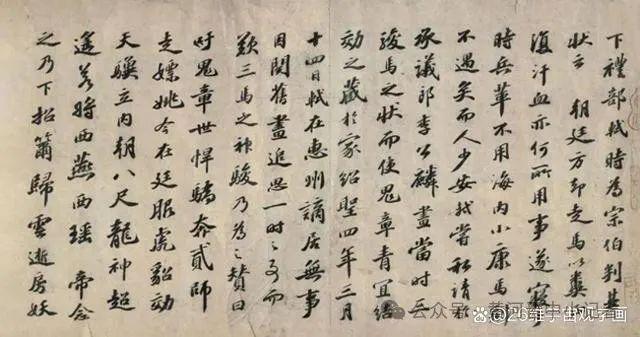 下禮部軾時為宗伯判其
狀云 朝廷方却走馬以糞
復汗血亦何所用事遂寢
時兵革不用海內小康馬
不遇矣而人少安軾嘗私請於
承議郎李公麟畫當時三
駿馬之狀而使鬼章青宜結
効之藏於家紹聖四年三月
十四日軾在惠州謫居無事
因閱舊畫追思一時之事而
歎三馬之神駿乃為之贊曰
吁鬼章世悍驕奔貳師
走嫖姚今在廷服虎貂効
天驥立內朝八尺龍神超
遙若將西燕西瑤 帝念
之乃下招籋歸雲逝房妖
公众号
@26维宇宙观字画